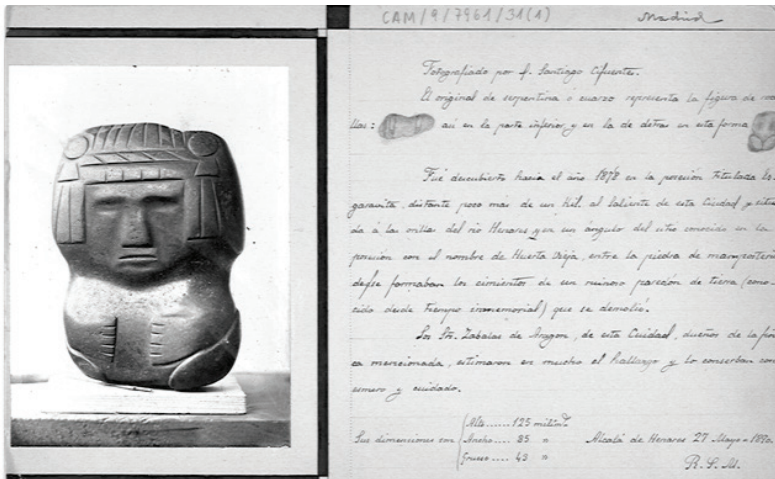 CAM/9/7961/31(1) Madrid
Fotografiado por f. Santiago Cifuentes.
El original de serpentina ó cuarzo representa la figura de
llas: así en la parte inferior y en la de detras en esta forma
Fué descubierto hacia el año 1878 en la posesión titulada
garavita, distante poco más de un Kil. al saliente de esta Ciudad y situa
da á las orillas del rio Henares y en un ángulo del sitio conocido en la
posesión con el nombre de Huerta Vieja, entre la piedra de mamposteria
de formaban los cimientos de un ruinoso paredon de tierra (cono-
cido desde tiempo inmemorial) que se demolió.
Los Srs. Zabalas de Aragon, de esta Ciudad, dueños de la fin
ca mencionada, estimaron en mucho el hallazgo y lo conservan con
esmero y cuidado.
Sus dimensiones son
Alto...... 125 milímº
Ancho.... 85 "
Grueso.... 43 "
Alcalá de Henares 27 Mayo - 1890.
R. S. M.